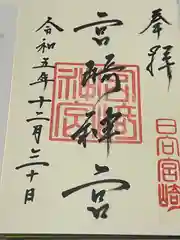 奉拝
日向宮崎
宮崎神宮
宮﨑神宮
令和五年十二月三十日